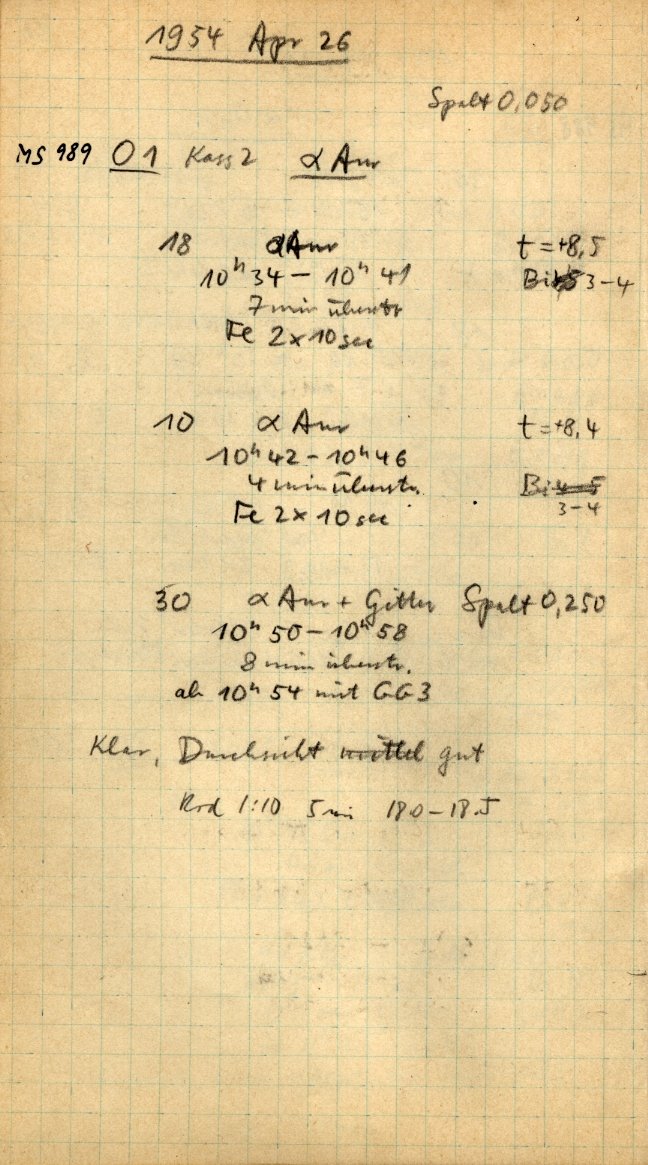 1954 Apr 26
Spalt 0,050
MS 989 O1 Kass 2 α Aur
18 α Aur t = +8,5
10ʰ 34 – 10ʰ 41 Bi 4-5 3-4
7 min überstr
Fe 2 x 10 sec
10 α Aur t = +8,4
10ʰ 42 – 10ʰ 46
4 min überstr. Bi 4-5
Fe 2 x 10 sec 3-4
30 α Aur + Gitter Spalt 0,250
10ʰ 50 – 10ʰ 58
8 min überstr.
ab 10ʰ 54 mit GG3
Klar, Durchsicht mittel gut
Rod 1:10 5 min 18.0 – 18.5